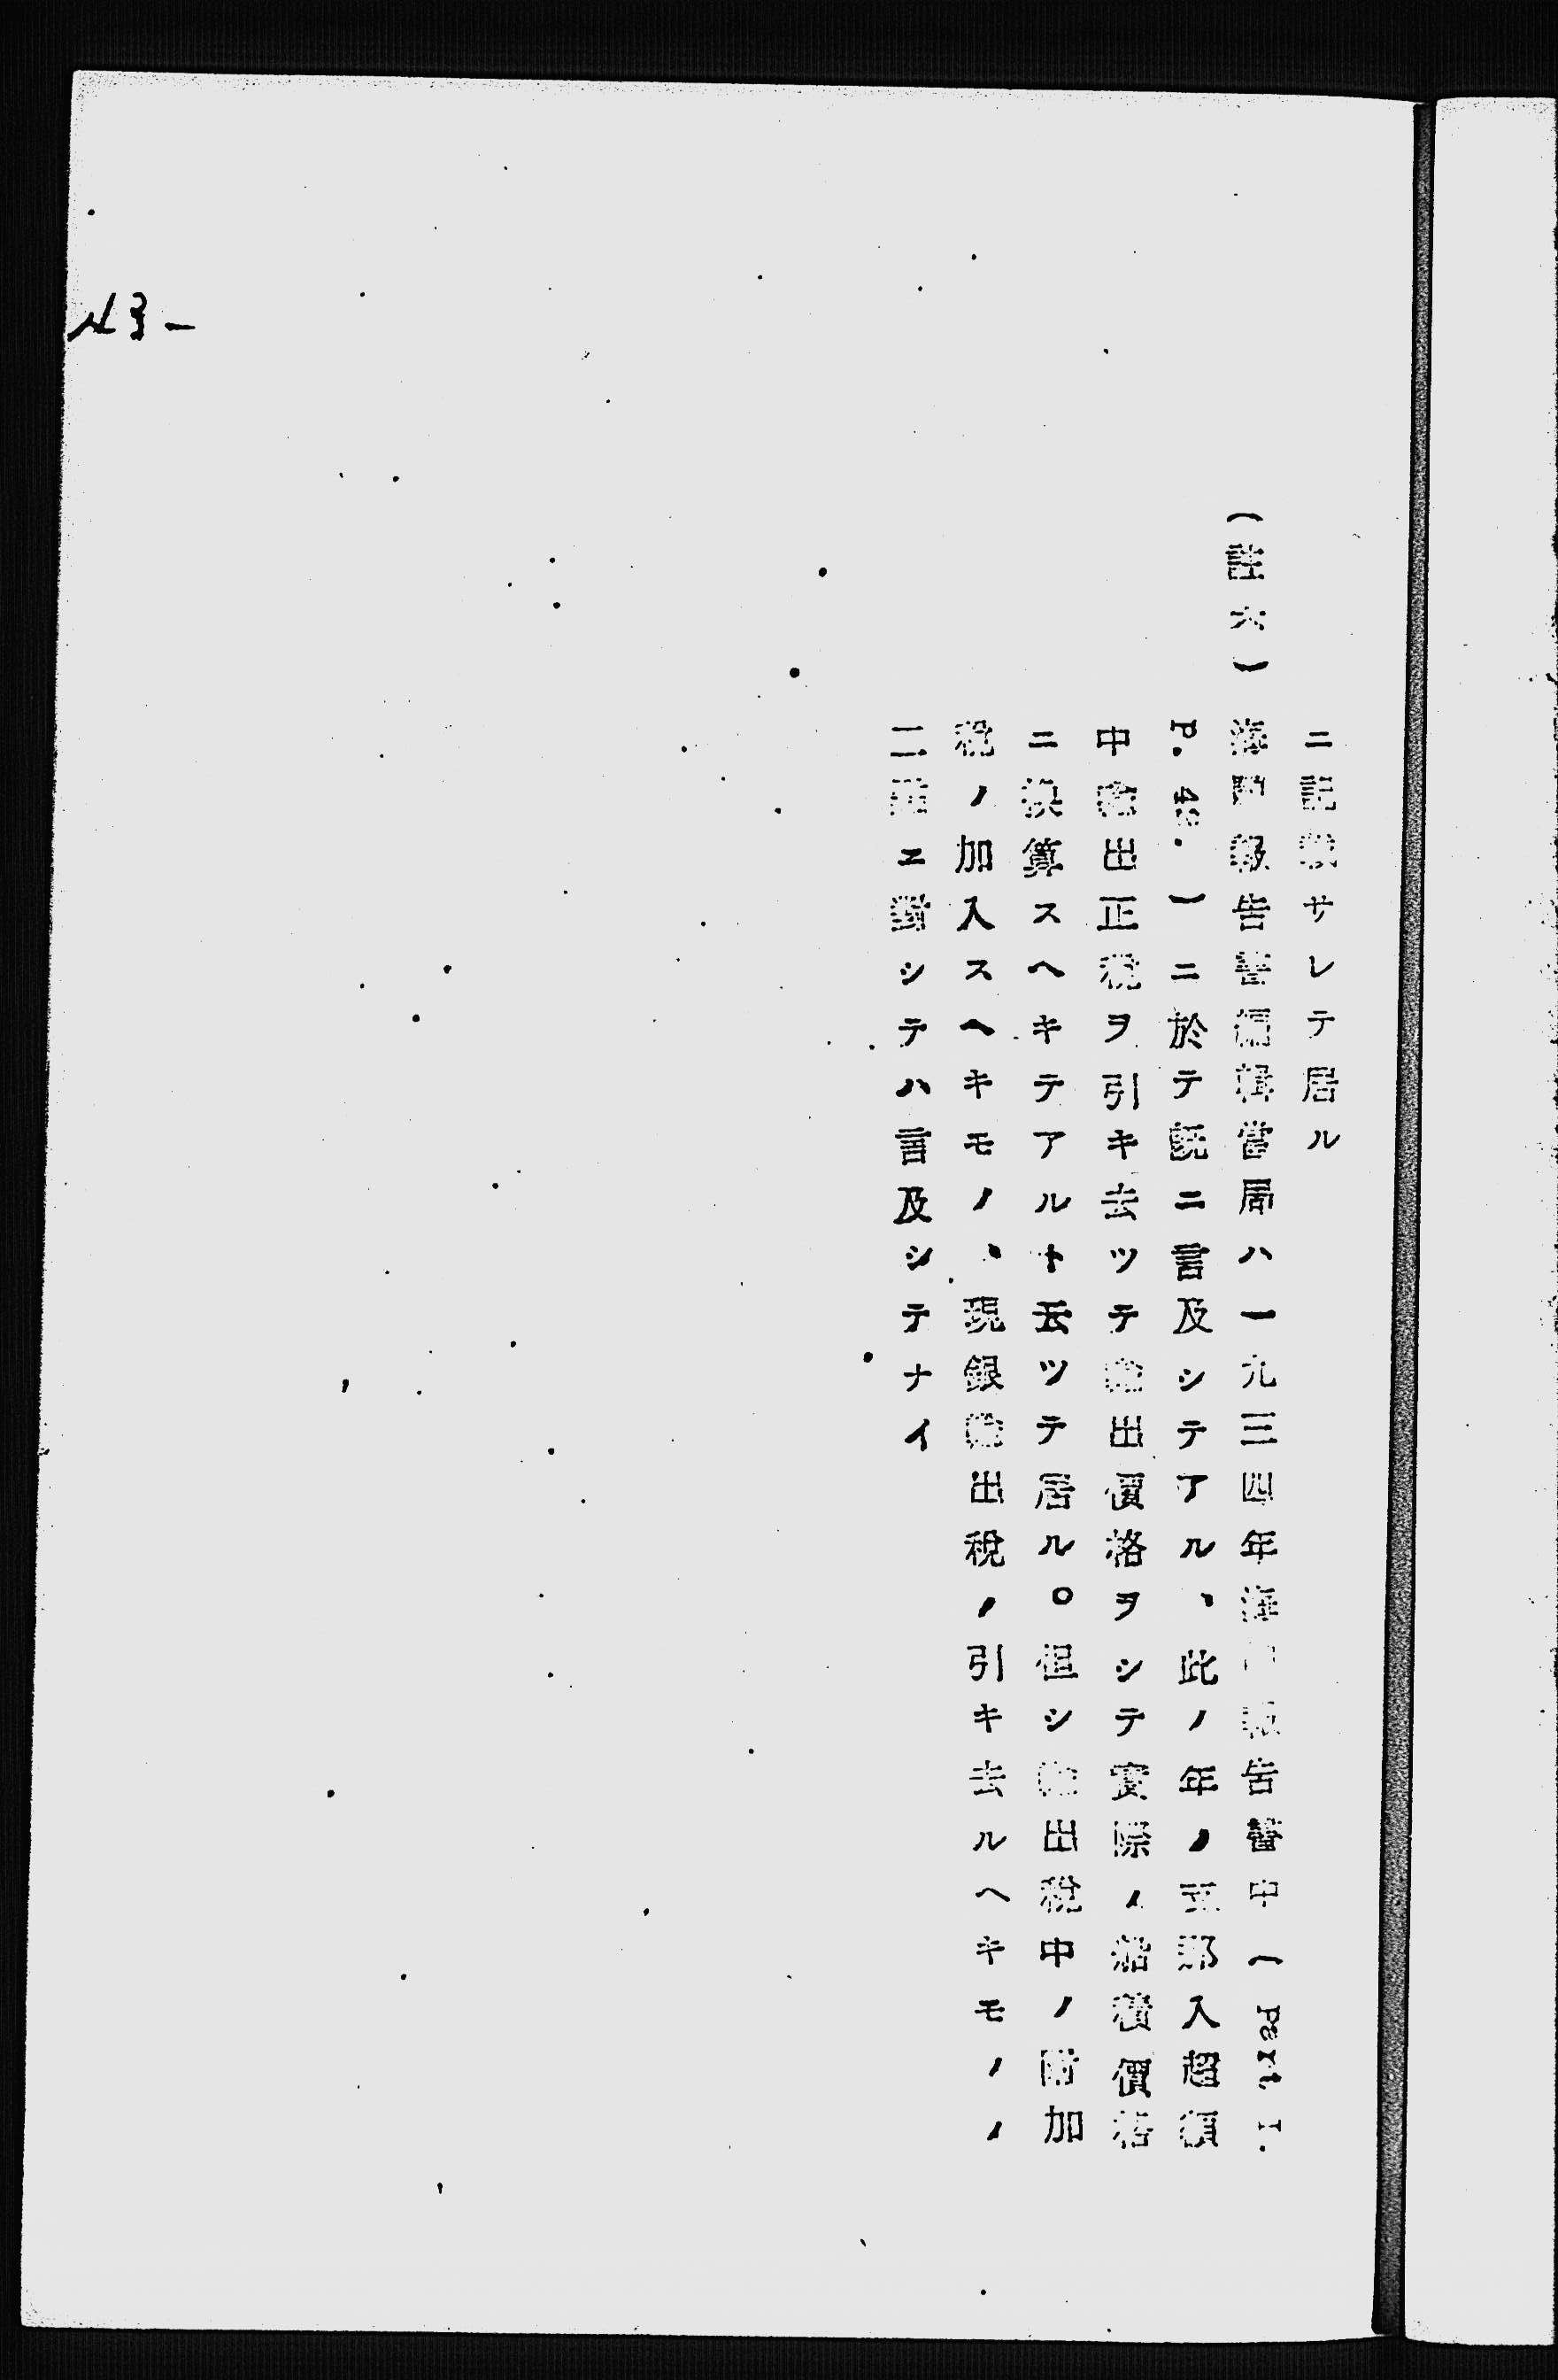 ニ記載サレテ居ル
(註六) 海關報告書編輯當局ハ一九三四年海關報告書中( Part I.
P. 42. )ニ於テ既ニ言及シテアル、此ノ年ノ支那入超額
中輸出正税ヲ引キ去ツテ輸出價格ヲシテ實際ノ船積價格
ニ換算スヘキテアルト云ツテ居ル。但シ輸出税中ノ附加
税ノ加入スヘキモノ、現銀輸出税ノ引キ去ルヘキモノノ
二種エ對シテハ言及シテナイ
43-